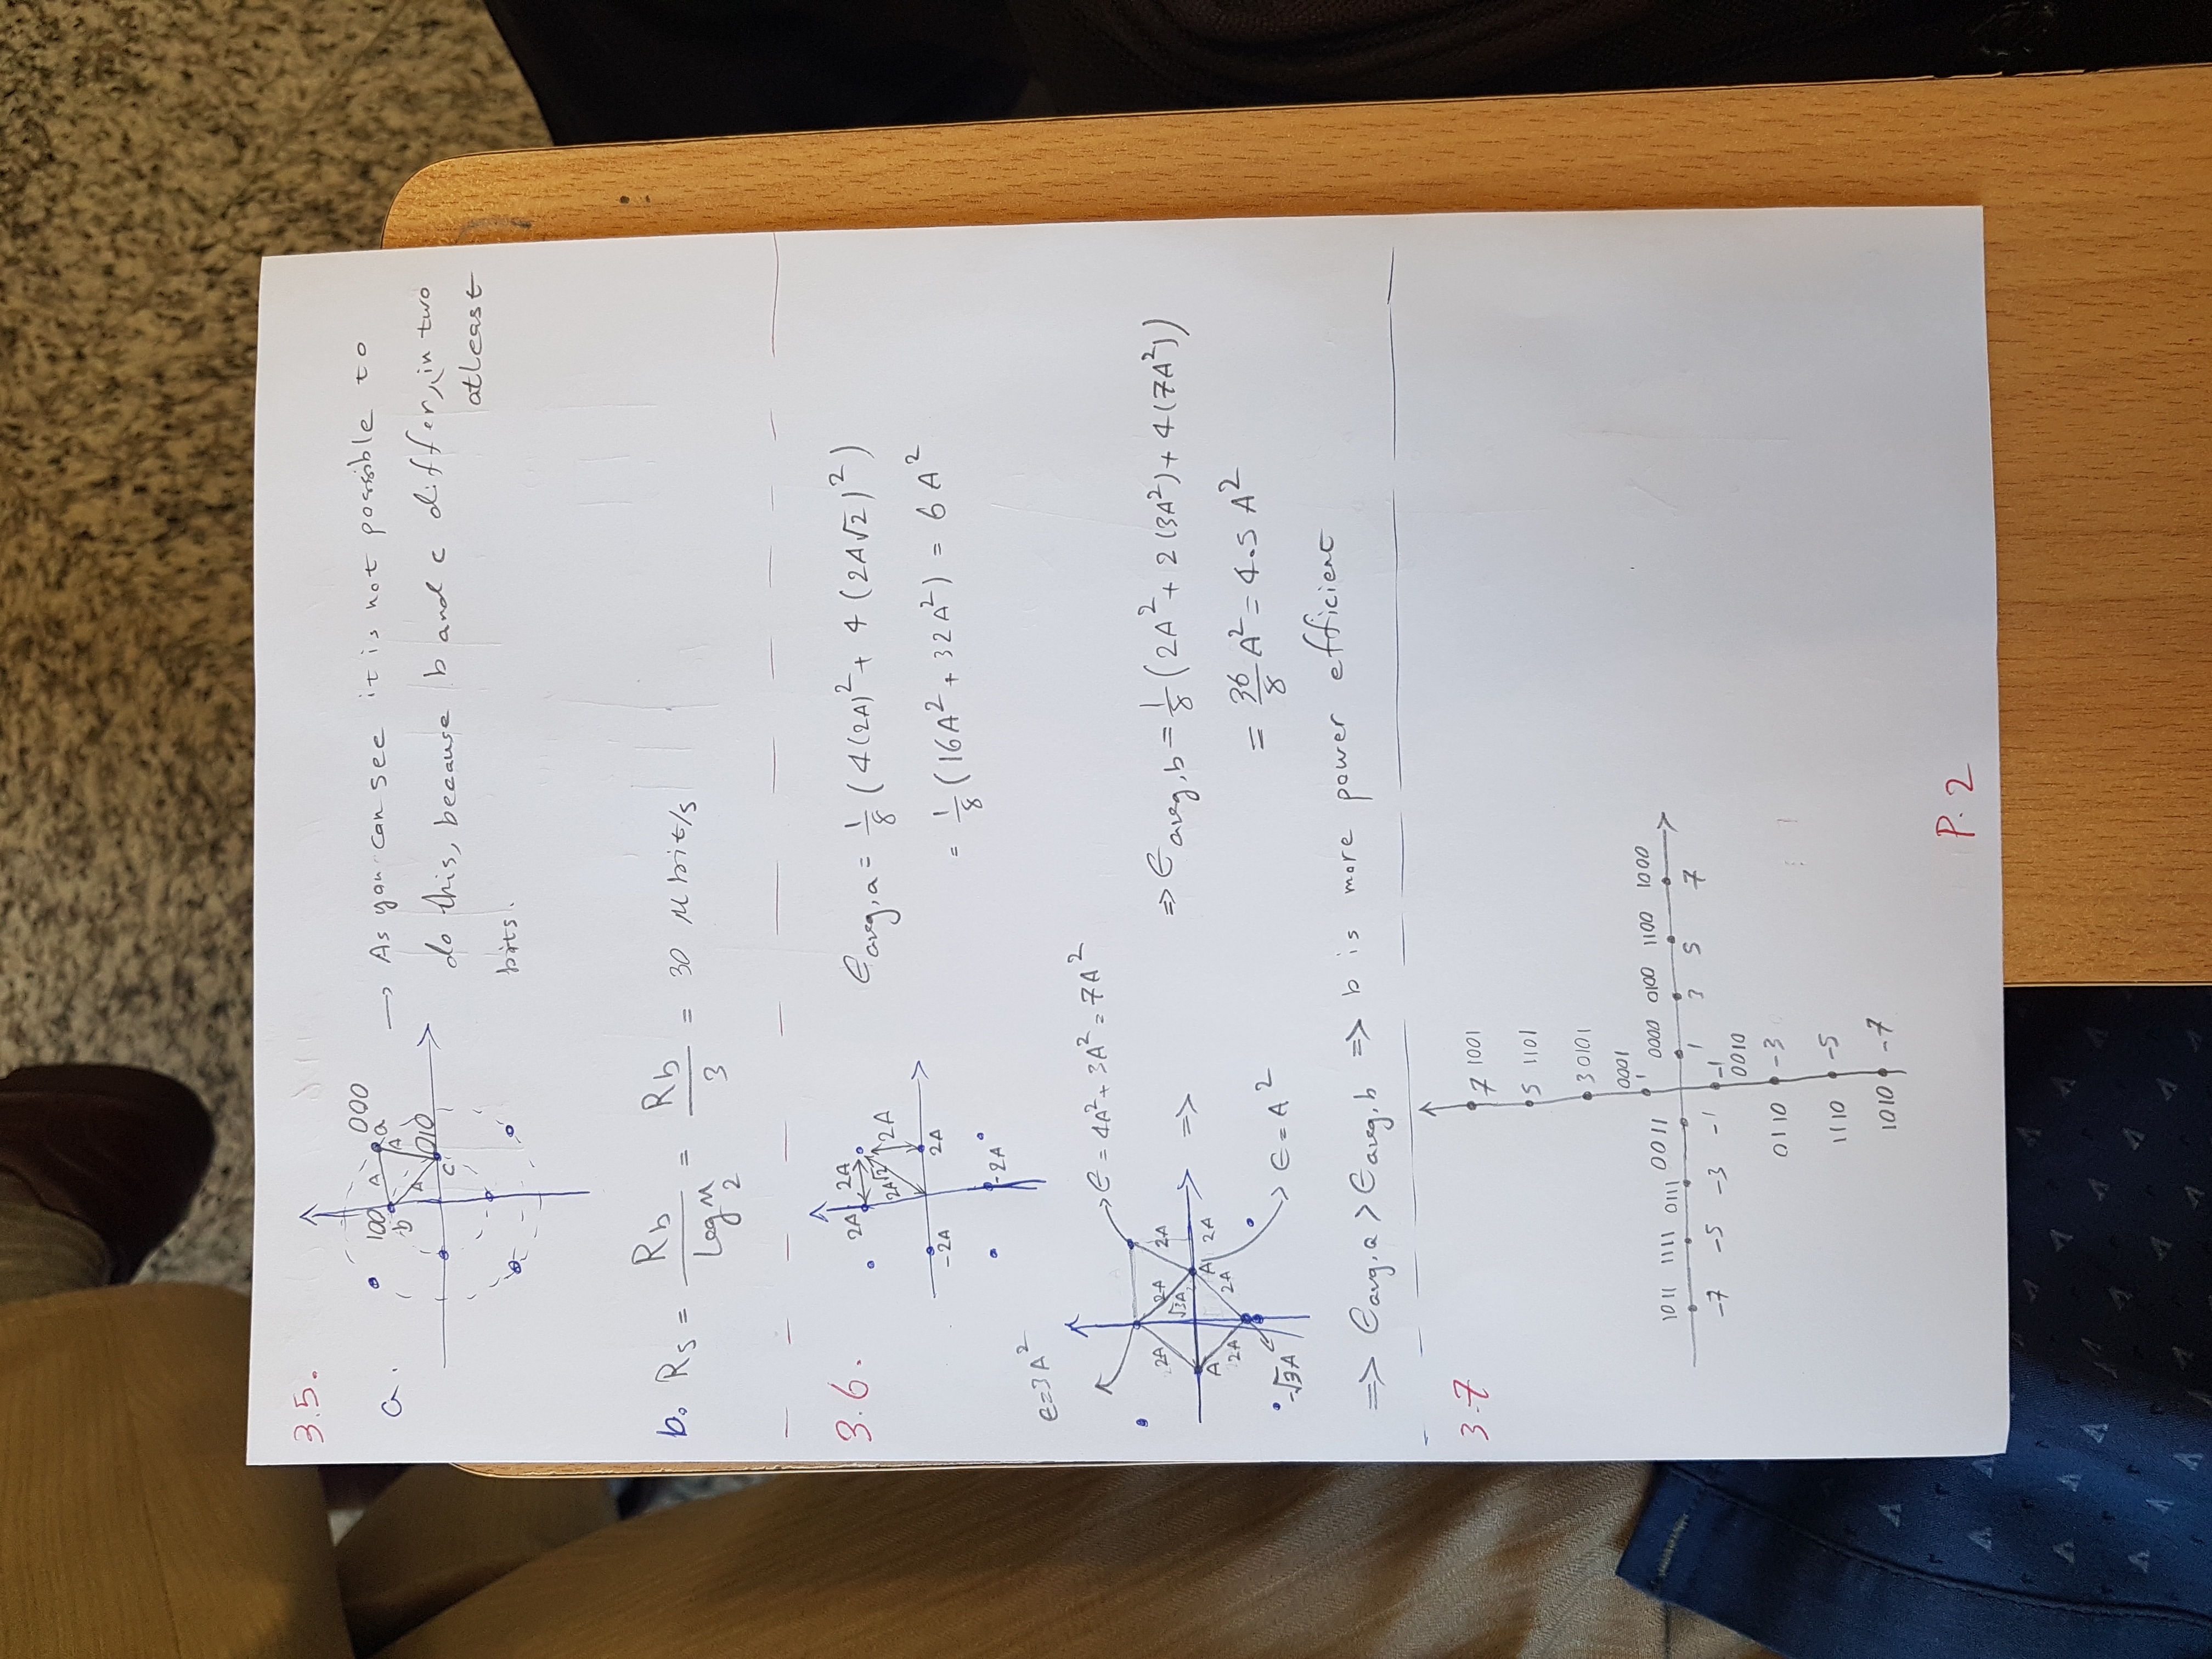 3.5.
a.
000
100 A a
b A
A 010
c
→ As you can see it is not possible to
do this, because b and c differ, in two
atleast
bits.
b. Rs = Rb / Log M 2 = Rb / 3 = 30 Mbit/s
3.6.
2A 2A
2A√2 2A
-2A 2A
-2A
Eavg,a = 1/8 (4(2A)² + 4(2A√2)²)
= 1/8 (16A² + 32A²) = 6A²
E=3A²
E = 4A² + 3A² = 7A²
2A 2A 2A
√3A
A A 2A
2A 2A
-√3A
E = A²
⇒
⇒ Eavg,b = 1/8 (2A² + 2(3A²) + 4(7A²))
= 36/8 A² = 4.5 A²
⇒ Eavg,a > Eavg,b ⇒ b is more power efficient
3.7
7 1001
5 1101
3 0101
0001
1
1011 1111 0111 0011 0000 0100 1100 1000
-7 -5 -3 -1 1 3 5 7
-1
0010
0110 -3
1110 -5
1010 -7
P.2